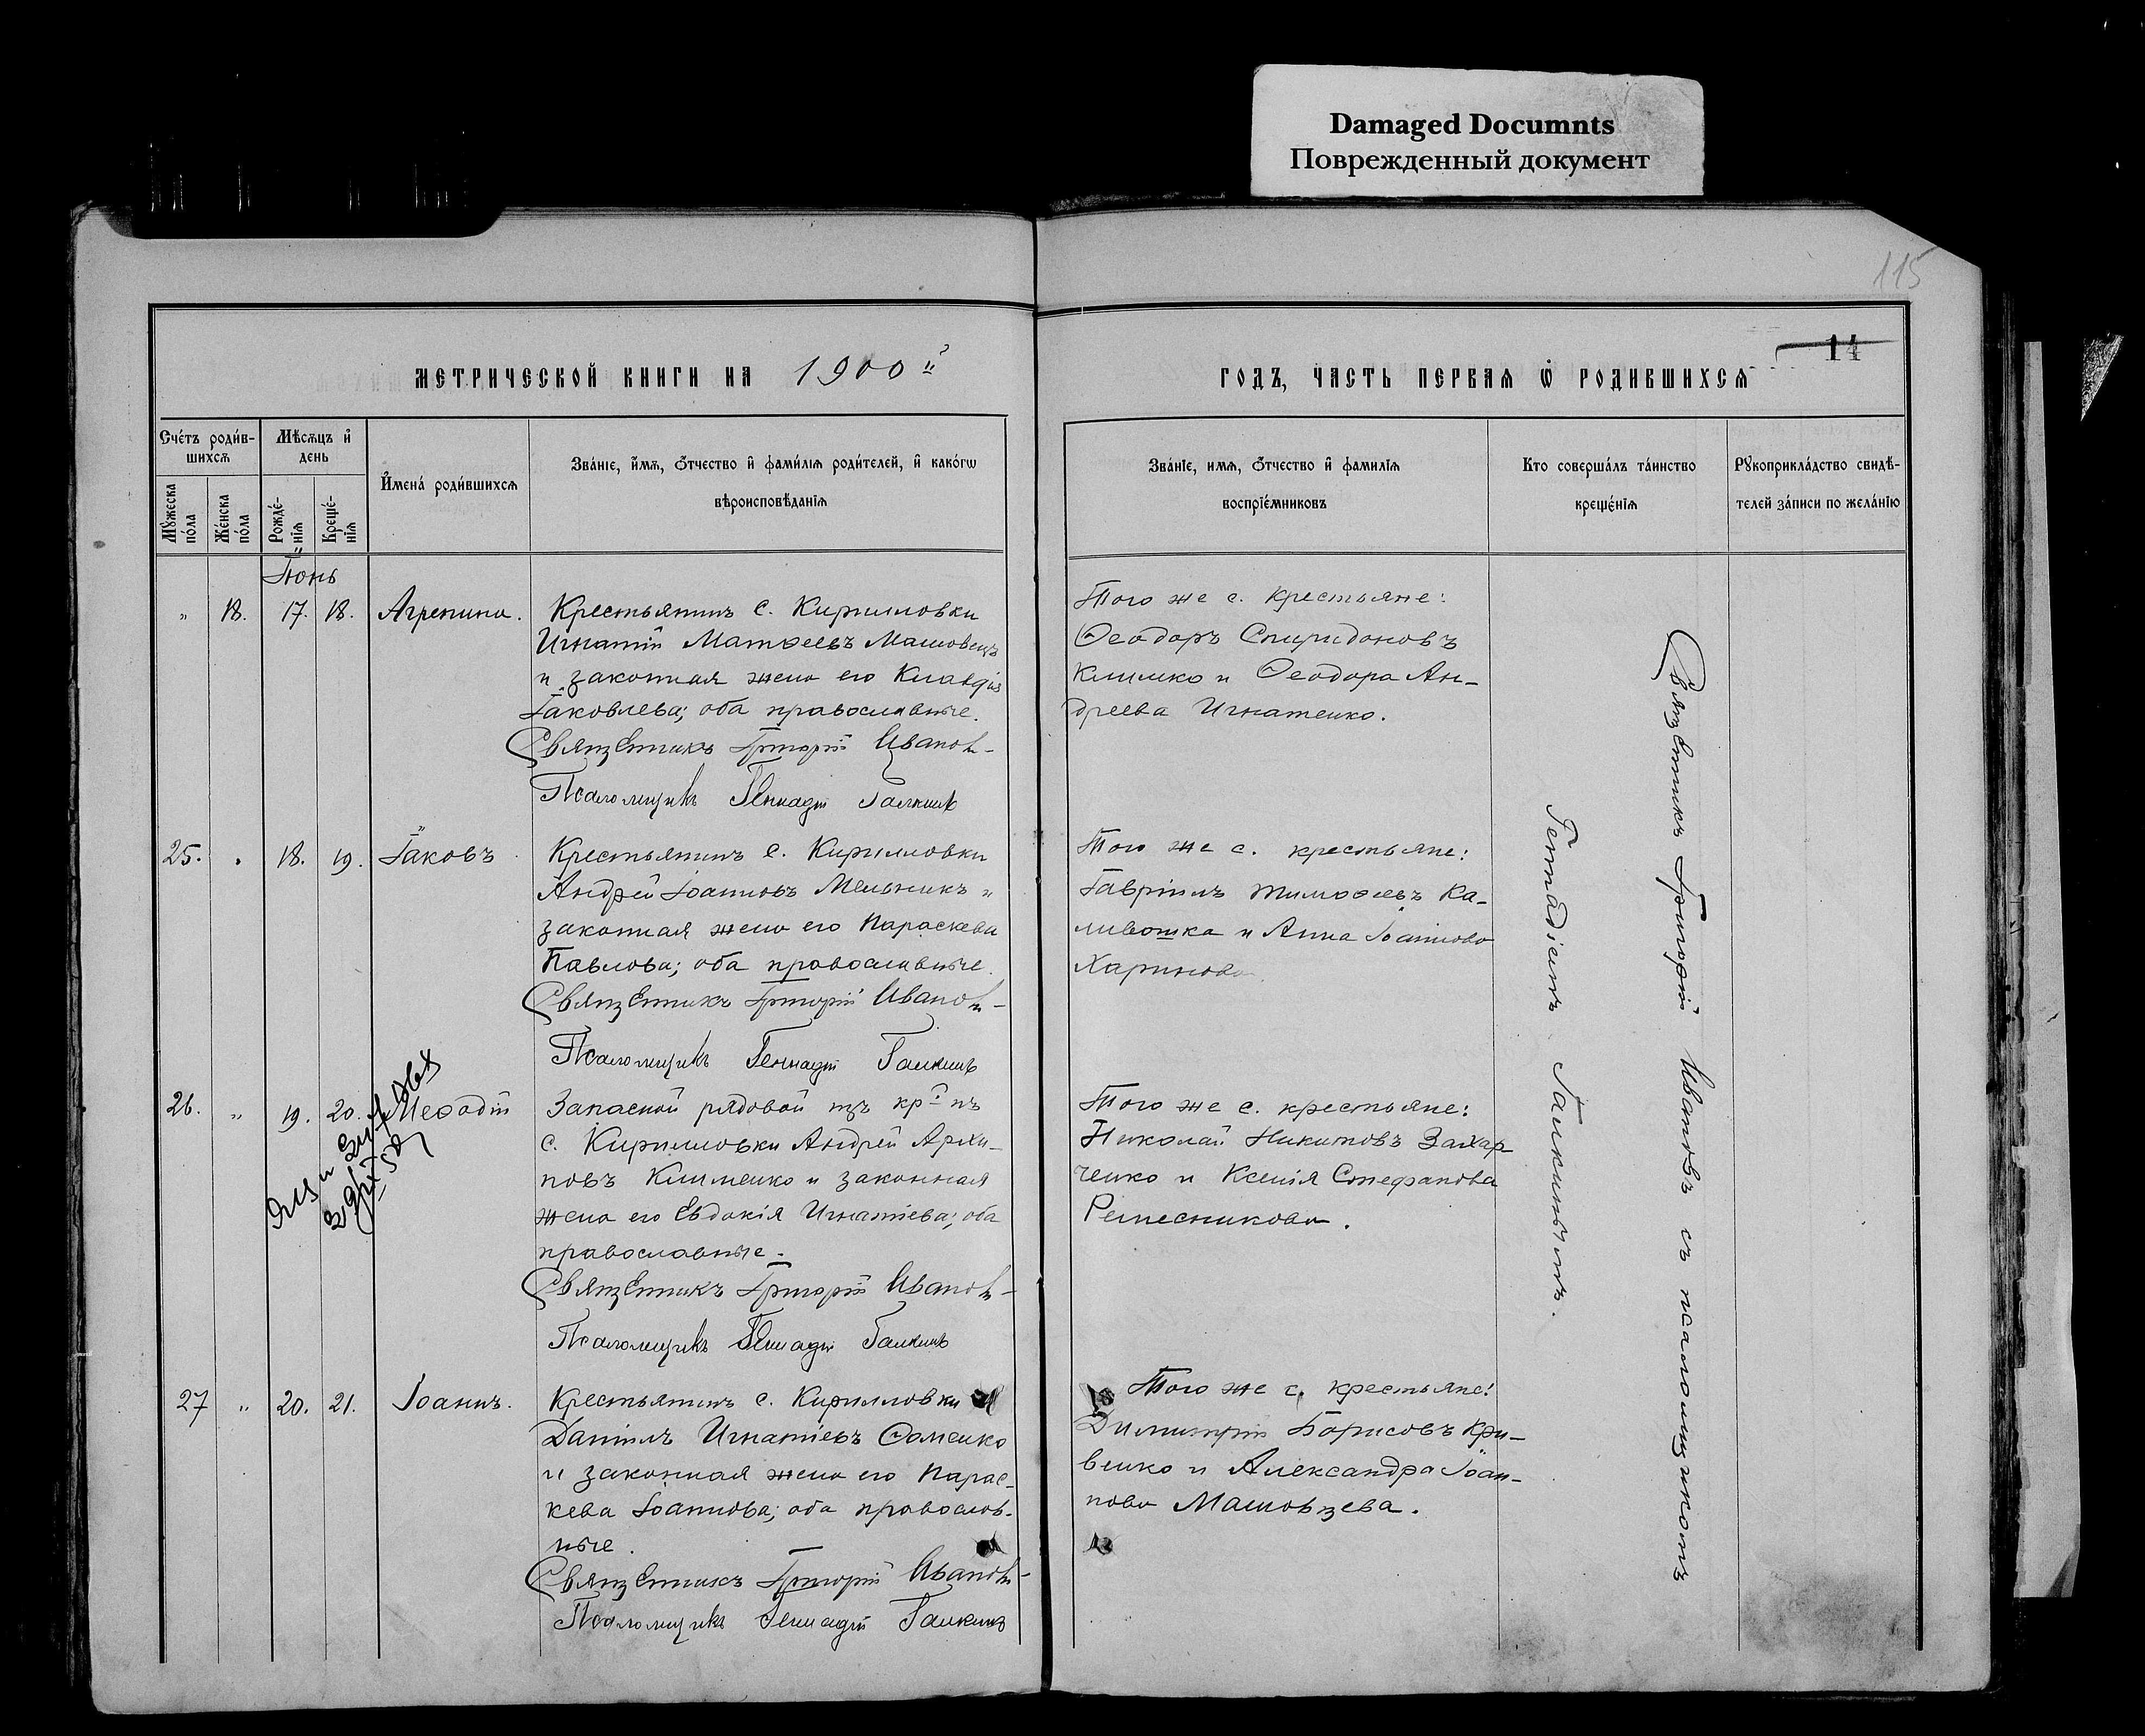 Damaged Documnts
Поврежденный документ
115
14
МЕТРИЧЕСКОЙ КНИГИ НА 1900й
ГОДЪ, ЧАСТЬ ПЕРВАЯ Ѡ РОДИВШИХСѦ
Счéтъ роди́в-
шихсѧ
Мꙋжеска
по́ла
Же́нска
по́ла
Мѣсѧцъ и҆
день
Рожде́-
нїѧ
Креще́-
нїѧ
И҆мена́ роди́вшихсѧ
Зва́нїе, и҆́мѧ, ѻ҆́тчество и҆ фами́лїѧ роди́телей, и҆ како́гѡ
вѣроисповѣ́данїѧ
Зва́нїе, имѧ, ѻ҆́тчество и҆ фамилїѧ
воспрїе́мниковъ
Кто соверша́лъ та́инство
креще́нїѧ
Рꙋкоприкла́дство свидѣ́-
телей за́писи по жела́нїю
Іюнь
" 18. 17. 18. Агрепина.
Крестьянинъ с. Кирилловки
Игнатій Матѳеевъ Машовецъ
и законная жена его Клавдія
Іаковлева; оба православные.
Священникъ Григорій Ивановъ
Псаломщикъ Геннадій Галкинъ
Того же с. крестьяне:
Ѳеодоръ Спиридоновъ
Климко и Ѳеодора Ан-
дреева Игнатенко.
25. " 18. 19. Іаковъ
Крестьянинъ с. Кирилловки
Андрей Іоанновъ Мельникъ и
законная жена его Параскева
Павлова; оба православные.
Священникъ Григорій Ивановъ
Псаломщикъ Геннадій Галкинъ
Того же с. крестьяне:
Гавріилъ Тимоѳеевъ Ка-
ливошка и Анна Іоаннова
Харинова
26. " 19. 20. Меѳодій
Запасной рядовой изъ кр-нъ
с. Кирилловки Андрей Архи-
повъ Клименко и законная
жена его Евдокія Игнатіева; оба
православные.
Священникъ Григорій Ивановъ
Псаломщикъ Геннадій Галкинъ
Того же с. крестьяне:
Николай Никитовъ Захар-
ченко и Ксенія Стефанова
Ремесникова.
27 " 20. 21. Іоаннъ.
Крестьянинъ с. Кирилловки
Даніилъ Игнатіевъ Ѳоменко
и законная жена его Парас-
кева Іоаннова; оба православ-
ные.
Священникъ Григорій Ивановъ
Псаломщикъ Геннадій Галкинъ
Того же с. крестьяне:
Димитрій Борисовъ Кри-
венко и Александра Іоан-
нова Машовзева.
Священникъ Григорій Ивановъ съ псаломщикомъ
Геннадіемъ Галкинымъ.